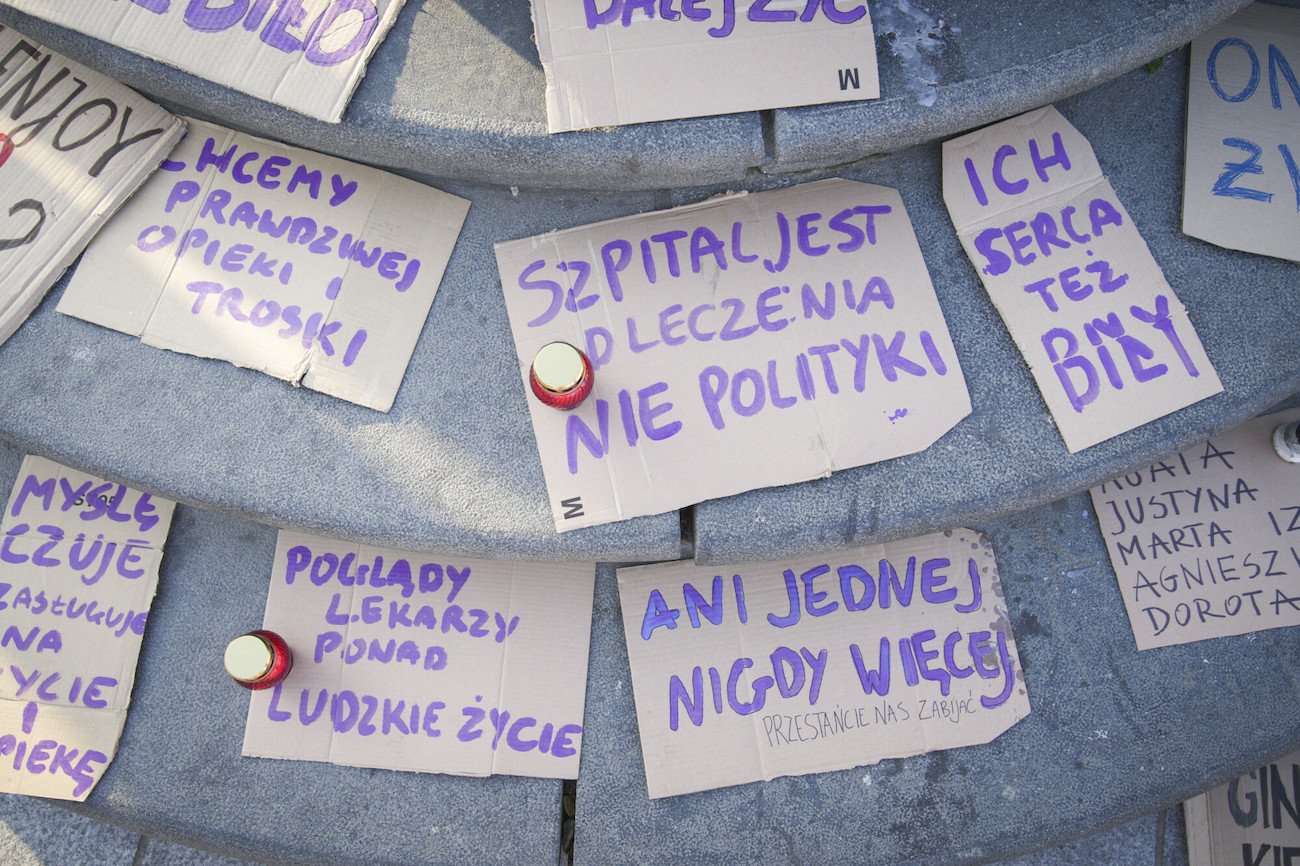 DALEJ ŻYĆ
M
ENJOY
?
CHCEMY
PRAWDZIWEJ
OPIEKI I
TROSKI
SZPITAL JEST
DLECZENIA
NIE POLITYKI
M
ICH
SERCA
TEŻ
BIŁY
ON
ŻY
MYŚLĘ
CZUJĘ
ZASŁUGUJĘ
NA
ŻYCIE
I
OPIEKĘ
POGLĄDY
LEKARZY
PONAD
LUDZKIE ŻYCIE
ANI JEDNEJ
NIGDY WIĘCEJ
PRZESTAŃCIE NAS ZABIJAĆ
JUSTYNA
MARTA IZ
AGNIESZ
DOROTA
GIN